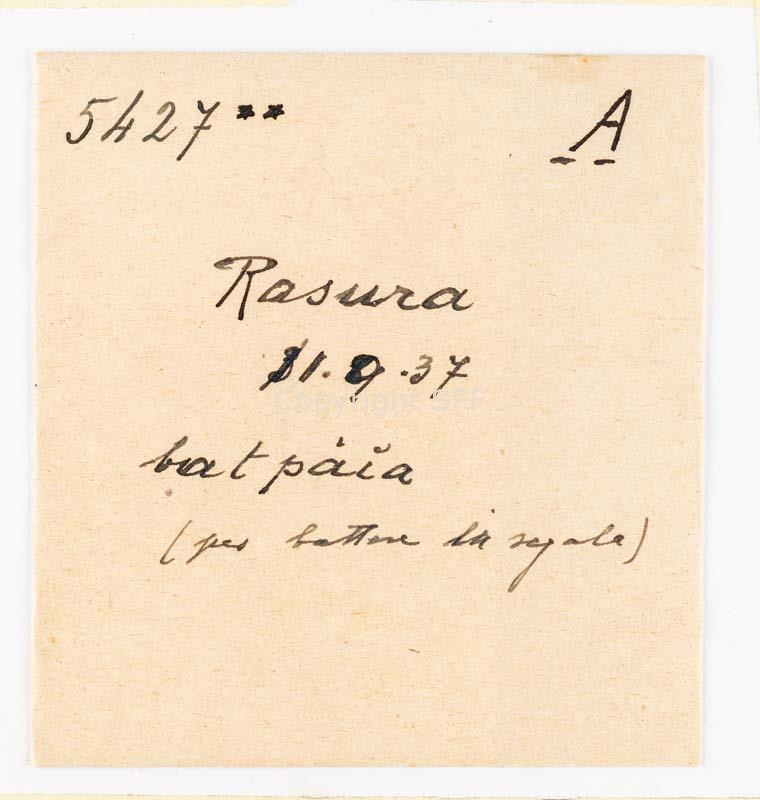 5427** A
Rasura
31.9.37
bat páĭa
(per battere la segale)
Copyright SFF